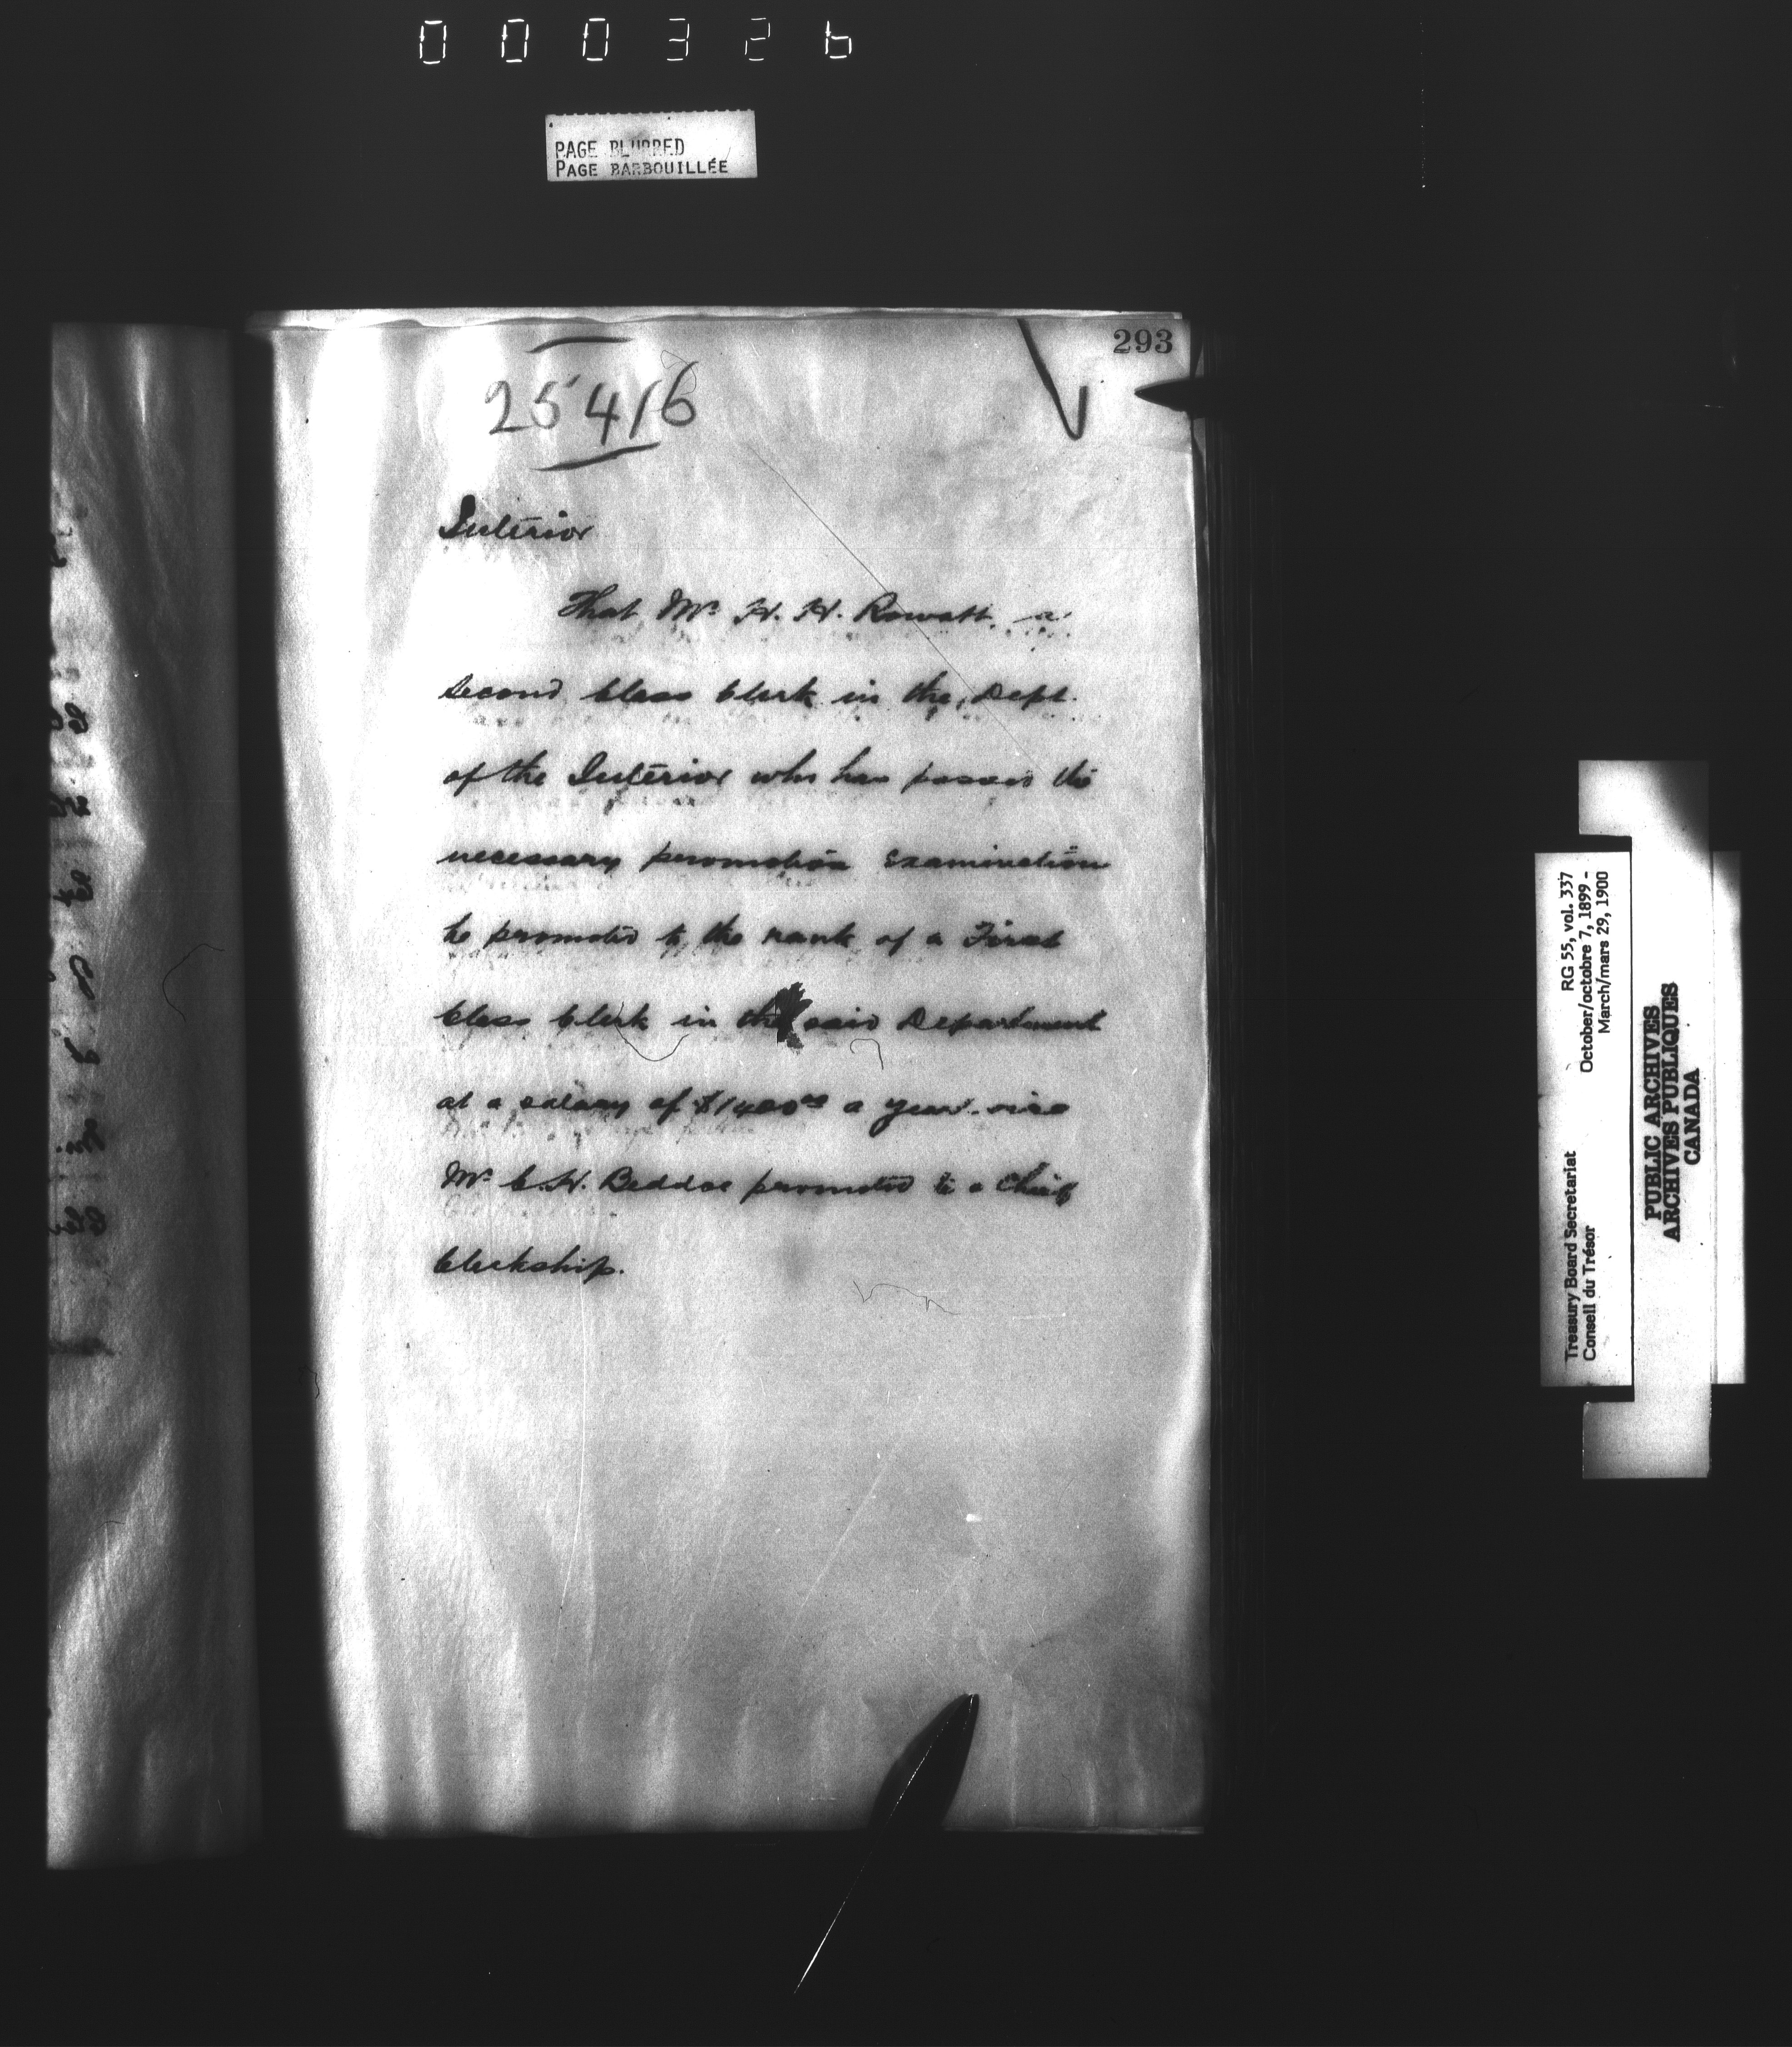 000326
PAGE BLURRED
PAGE BARBOUILLÉE
293
25416
Interior
That Mr. H. H. Rowatt, a
second Class Clerk in the Dept.
of the Interior who has passed the
necessary promotion examination
be promoted to the rank of a First
Class Clerk in the said Department
at a salary of $1400.00 a year vice
Mr. C. H. Beddoe promoted to a Chief
Clerkship.
Treasury Board Secretariat
Conseil du Trésor
RG 55, vol. 337
October/octobre 7, 1899 -
March/mars 29, 1900
PUBLIC ARCHIVES
ARCHIVES PUBLIQUES
CANADA